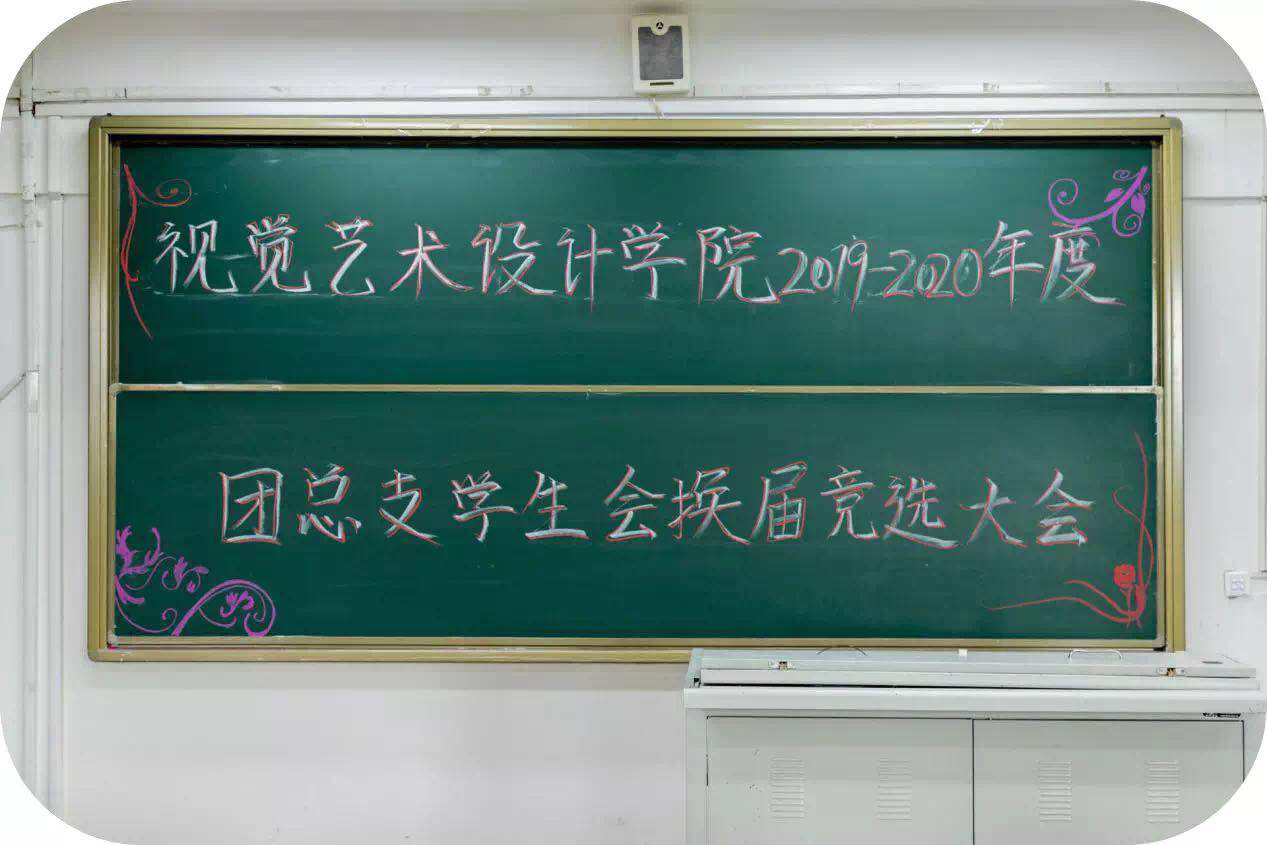 视觉艺术设计学院2019-2020年度
团总支学生会换届竞选大会